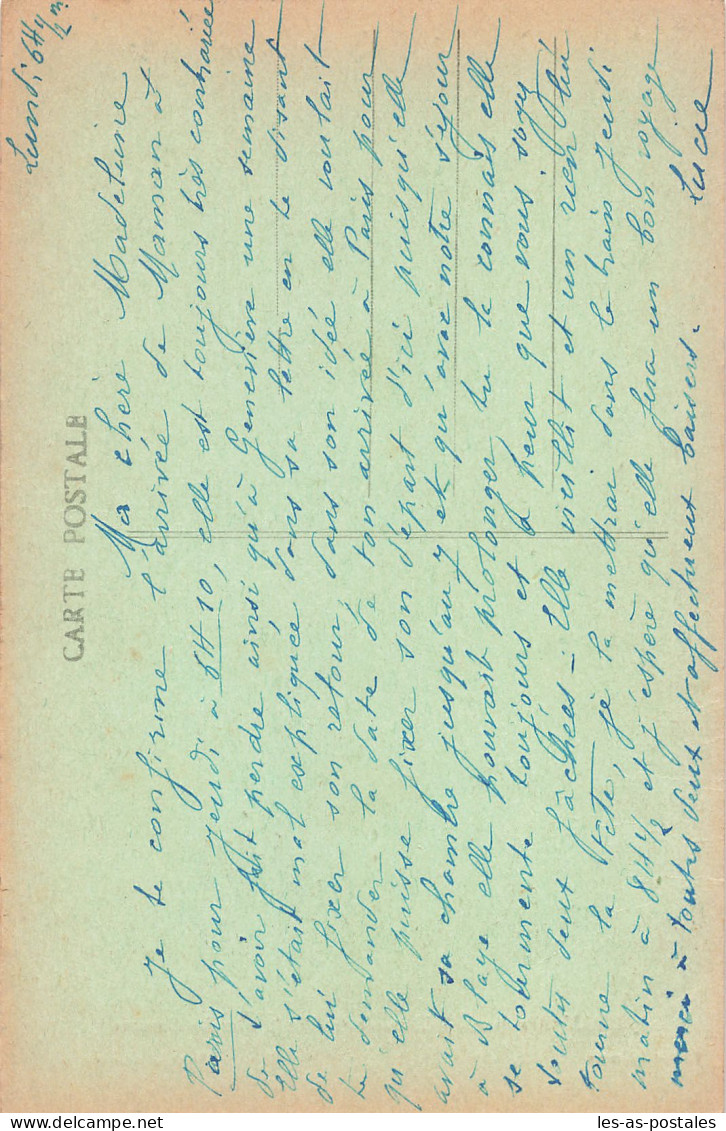 Lundi 6H 1/2
CARTE POSTALE
Ma chère Madeleine
Je te confirme l'arrivée de Maman à
Paris pour Jeudi à 8H10, elle est toujours très contrariée
de t'avoir fait perdre ainsi qu'à Geneviève une semaine
Elle s'était mal expliquée dans sa lettre en te disant
de lui fixer son retour, dans son idée elle voulait
te demander la date de ton arrivée à Paris pour
qu'elle puisse fixer son départ d'ici puisqu'elle
avait sa chambre jusqu'au 7 et qu'avec notre séjour
à Blaye elle pouvait prolonger, tu la connais elle
se tourmente toujours et a peur que vous soyez
toutes deux fâchées - Elle vieillit et un rien lui
tourne la tête, je la mettrai dans le train Jeudi
matin à 8H 1/2 et j'espère qu'elle fera un bon voyage
merci à toutes deux et affectueux baisers.
Lucie
les-as-postales